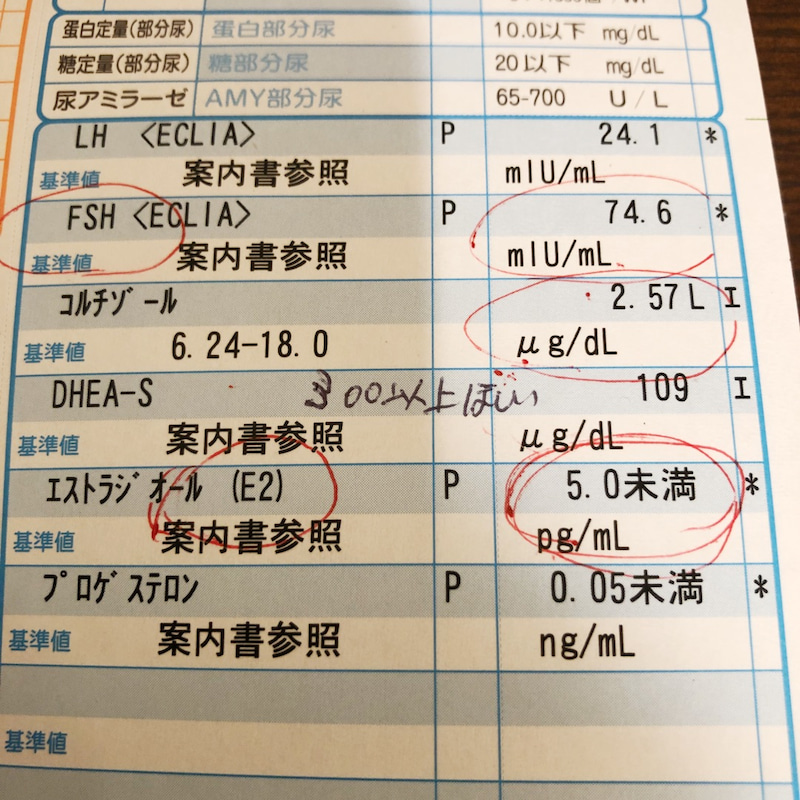 蛋白定量(部分尿) 蛋白部分尿 10.0以下 mg/dL
糖定量(部分尿) 糖部分尿 20以下 mg/dL
尿アミラーゼ AMY部分尿 65-700 U/L
LH <ECLIA> P 24.1 *
基準値 案内書参照 mIU/mL
FSH <ECLIA> P 74.6 *
基準値 案内書参照 mIU/mL
コルチゾール 2.57 L I
基準値 6.24-18.0 μg/dL
DHEA-S 300以上ほしい 109 I
基準値 案内書参照 μg/dL
エストラジオール (E2) P 5.0未満 *
基準値 案内書参照 pg/mL
プロゲステロン P 0.05未満 *
基準値 案内書参照 ng/mL
基準値